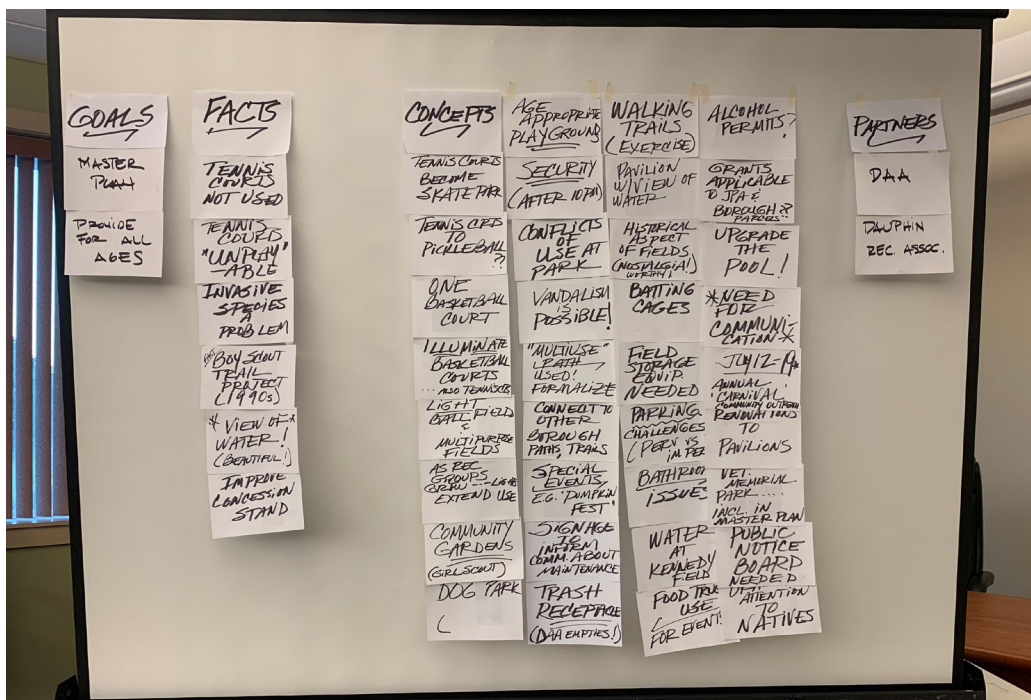 GOALS
MASTER
PLAN
PROVIDE
FOR ALL
AGES
FACTS
TENNIS
COURTS
NOT USED
TENNIS
COURT
"UNPLAY"
-ABLE
INVASIVE
SPECIES
A
PROBLEM
BOY SCOUT
TRAIL
PROJECT
(1990s)
* VIEW OF *
WATER!
(BEAUTIFUL!)
IMPROVE
CONCESSION
STAND
CONCEPTS
TENNIS COURTS
BECOME
SKATE PARK
TENNIS CRTS
TO
PICKLEBALL
??
ONE
BASKETBALL
COURT
ILLUMINATE
BASKETBALL
COURTS
... ALSO TENNIS CTS
LIGHT
BALL FIELD
&
MULTIPURPOSE
FIELDS
AS REC
GROUPS
GROW --- LIGHTS
EXTEND USE
COMMUNITY
GARDENS
(GIRL SCOUT)
DOG PARK
(
AGE
APPROPRIATE
PLAYGROUND
SECURITY
(AFTER 10 PM)
CONFLICTS
OF
USE AT
PARK
VANDALISM
IS
POSSIBLE!
"MULTIUSE"
PATH
USED!
FORMALIZE
CONNECT TO
OTHER
BOROUGH
PATHS, TRAILS
SPECIAL
EVENTS
E.G. "PUMPKIN
FEST"
SIGNAGE
TO
INFORM
COMM. ABOUT
MAINTENANCE
TRASH
RECEPTACLE
(DAA EMPTIES!)
WALKING
TRAILS
(EXERCISE)
PAVILION
W/VIEW OF
WATER
HISTORICAL
ASPECT
OF FIELDS
(NOSTALGIA!)
WORTHY!
BATTING
CAGES
FIELD
STORAGE
EQUIP.
NEEDED
PARKING
CHALLENGES
(PERV VS
IMPER
BATHROOM
ISSUES
WATER
AT
KENNEDY
FIELD
FOOD TRUCK
USE
FOR EVENTS
ALCOHOL
PERMITS?
GRANTS
APPLICABLE
TO JPA &
BOROUGH?
PARCELS
UPGRADE
THE
POOL!
*NEED
FOR
COMMUNI-
CATION*
JULY 12-19*
ANNUAL
CARNIVAL
COMMUNITY OUTREACH
RENOVATIONS
TO
PAVILIONS
VET.
MEMORIAL
PARK....
INCL. IN
MASTER PLAN
PUBLIC
NOTICE
BOARD
NEEDED
ATTENTION
TO
NATIVES
PARTNERS
DAA
DAUPHIN
REC. ASSOC.